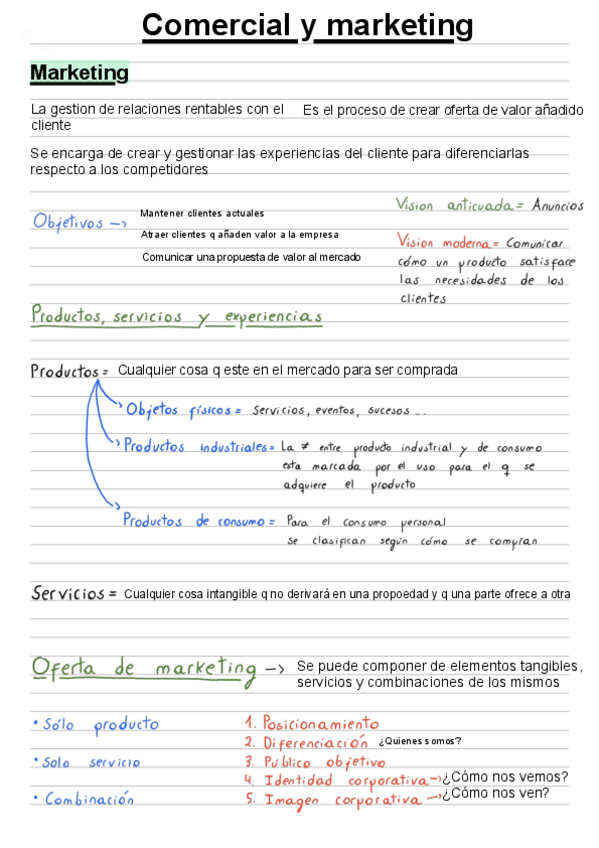 Comercial y marketing
Marketing
La gestion de relaciones rentables con el cliente
Es el proceso de crear oferta de valor añadido
Se encarga de crear y gestionar las experiencias del cliente para diferenciarlas
respecto a los competidores
Objetivos ->
Mantener clientes actuales
Atraer clientes q añaden valor a la empresa
Comunicar una propuesta de valor al mercado
Vision anticuada = Anuncios
Vision moderna = Comunicar
cómo un producto satisface
las necesidades de los
clientes
Productos, servicios y experiencias
Productos = Cualquier cosa q este en el mercado para ser comprada
Objetos físicos = Servicios, eventos, sucesos ...
Productos industriales = La ≠ entre producto industrial y de consumo
esta marcada por el uso para el q se
adquiere el producto
Productos de consumo = Para el consumo personal
se clasifican según cómo se compran
Servicios = Cualquier cosa intangible q no derivará en una propoedad y q una parte ofrece a otra
Oferta de marketing -> Se puede componer de elementos tangibles,
servicios y combinaciones de los mismos
• Sólo producto
• Solo servicio
• Combinación
1. Posicionamiento
2. Diferenciación ¿Quienes somos?
3. Publico objetivo
4. Identidad corporativa -> ¿Cómo nos vemos?
5. Imagen corporativa -> ¿Cómo nos ven?